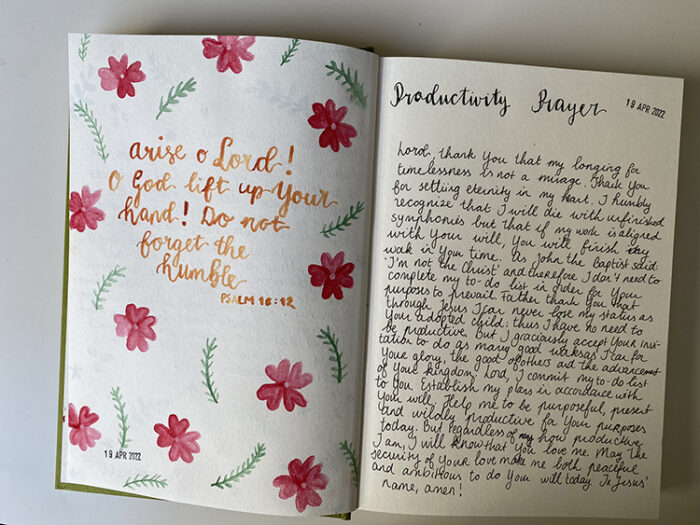 arise o Lord!
O God lift up Your
hand! Do not
forget the
humble
PSALM 10:12
19 APR 2022
Productivity Prayer
19 APR 2022
Lord, thank You that my longing for
timelessness is not a mirage. Thank You
for setting eternity in my heart. I humbly
recognize that I will die with unfinished
symphonies but that if my work is aligned
with Your will, You will finish my
work in Your time. As John the Baptist said
'I'm not the Christ' and therefore I don't need to
complete my to-do list in order for Your
purposes to prevail. Father thank You that
through Jesus I can never lose my status as
Your adopted child; thus I have no need to
be productive. But I graciously accept Your invi-
tation to do as many good works as I can for
Your glory, the good of others and the advancement
of Your kingdom. Lord, I commit my to-do list
to You. Establish my plans in accordance with
Your will. Help me to be purposeful, present
and wildly productive for Your purposes
today. But regardless of how productive
I am, I will know that You love me. May the
security of Your love make me both peaceful
and ambitious to do You will today. In Jesus'
name, amen!